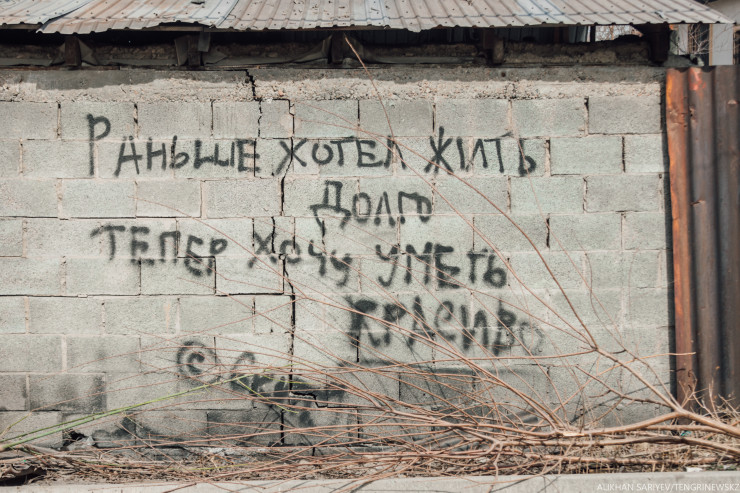 Раньше хотел жить
долго
тепер хочу уметь
красиво
©
ALIKHAN SARIYEV/TENGRINEWS.KZ